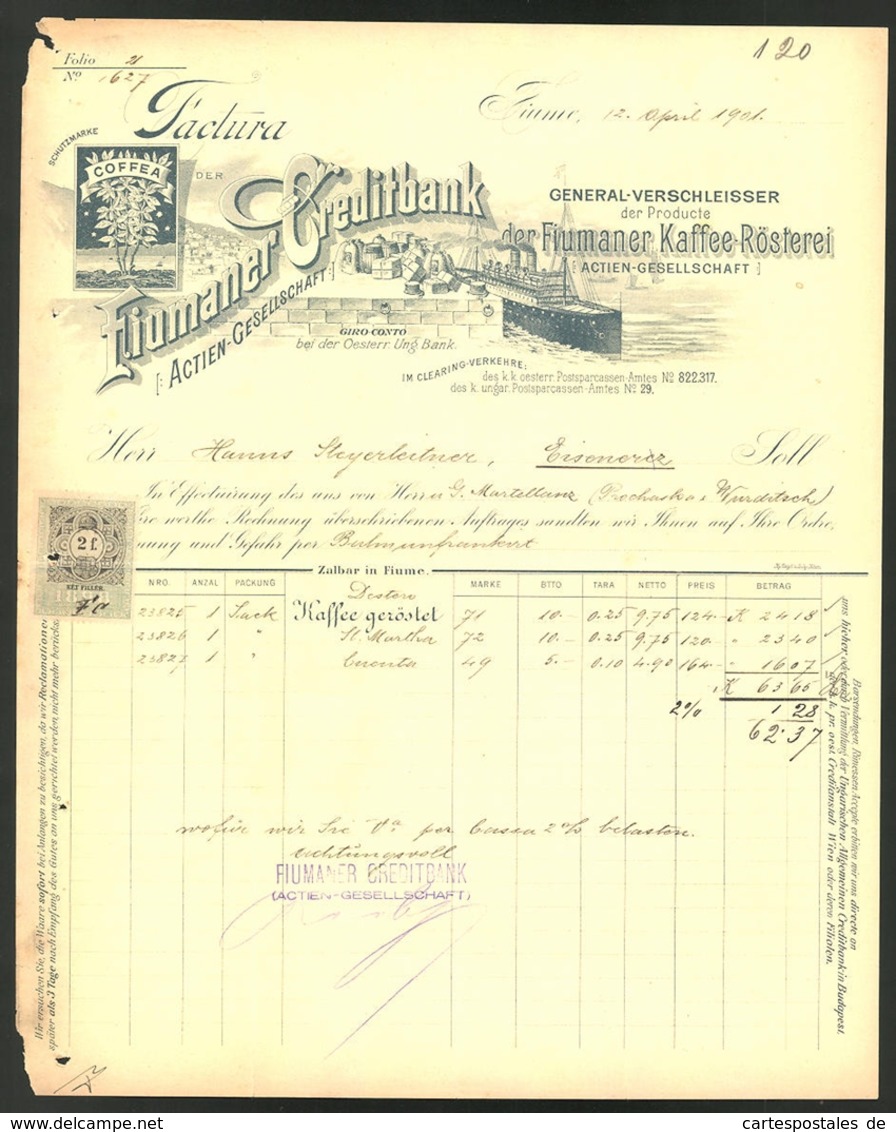 120
Folio 21
No 1627
Factura
Fiume, 12. April 1901.
SCHUTZMARKE
COFFEA
DER
Fiumaner Creditbank
[: ACTIEN-GESELLSCHAFT :]
GENERAL-VERSCHLEISSER
der Producte
der Fiumaner Kaffee-Rösterei
[: ACTIEN-GESELLSCHAFT :]
GIRO-CONTO
bei der Oesterr. Ung. Bank.
IM CLEARING-VERKEHRE:
des k.k. oesterr. Postsparcassen-Amtes No 822.317.
des k. ungar. Postsparcassen-Amtes No 29.
Herr Hanns Steyerleitner, Eisenerz Soll
In Effectuirung des uns von Herrn G. Martellanz (Prochaska & Wurditsch)
werthe Rechnung überschriebenen Auftrages sandten wir Ihnen auf Ihre Ordre,
nung und Gefahr per Bahn unfrankirt
2 f.
Zalbar in Fiume.
NRO. ANZAL PACKUNG MARKE BTTO TARA NETTO PREIS BETRAG
Kaffee geröstet
23825 1 Sack 71 10.- 0.25 9.75 124.- K 24 18
23826 1 " St. Martha 72 10.- 0.25 9.75 120.- " 23 40
23827 1 " 49 5.- 0.10 4.90 164.- " 16 07
K 63 65
2% 1 28
62.37
wofür wir Sie per Cassa 2% belasten.
Achtungsvoll
FIUMANER CREDITBANK
(ACTIEN-GESELLSCHAFT)
Wir ersuchen Sie, die Waare sofort bei Anlangen zu besichtigen, da wir Reclamationen
später als 3 Tage nach Empfang des Gutes an uns gerichtet werden, nicht mehr berücks.
Barsendungen, Rimessen Accepte erbitten wir uns directe an
uns hieher, oder durch Vermittlung der Ungarischen Allgemeinen Creditbank in Budapest,
k. k. pr. oest. Creditanstalt Wien oder deren Filialen.
www.cartespostales.de
cartespostales de